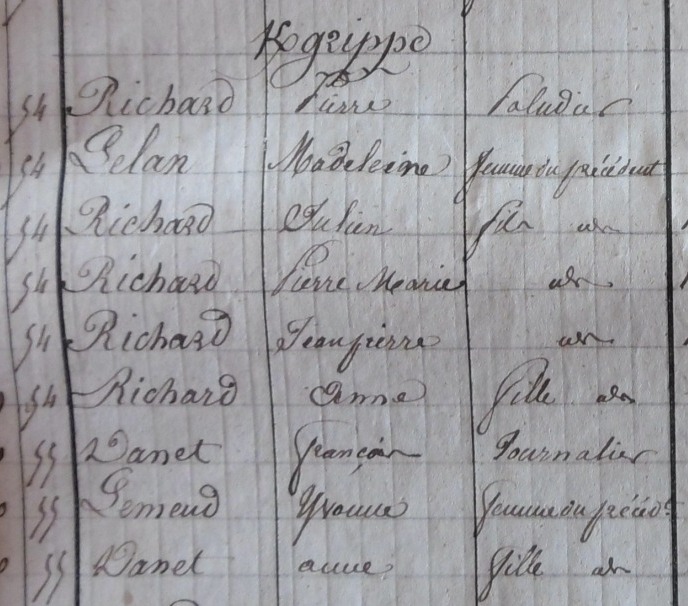 Kgrippe
54 Richard Pierre Paludier
54 Lelan Madeleine femme du précédent
54 Richard Julien fils id
54 Richard Pierre Marie id
54 Richard Jean pierre id
54 Richard Anne fille id
55 Danet françois Journalier
55 Lemeud Yvonne femme du précédt
55 Danet anne fille id